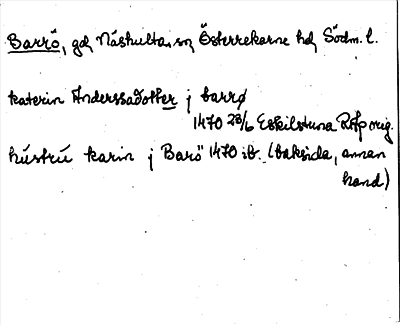 Barrö, gd, Näshulta sn, Österrekarne hd, Södm. l.
katerin Anderssadotter j barrø
1470 28/6 Eskilstuna RAp orig.
hústrú karin j Barö 1470 ib. (baksida, annan
hand)